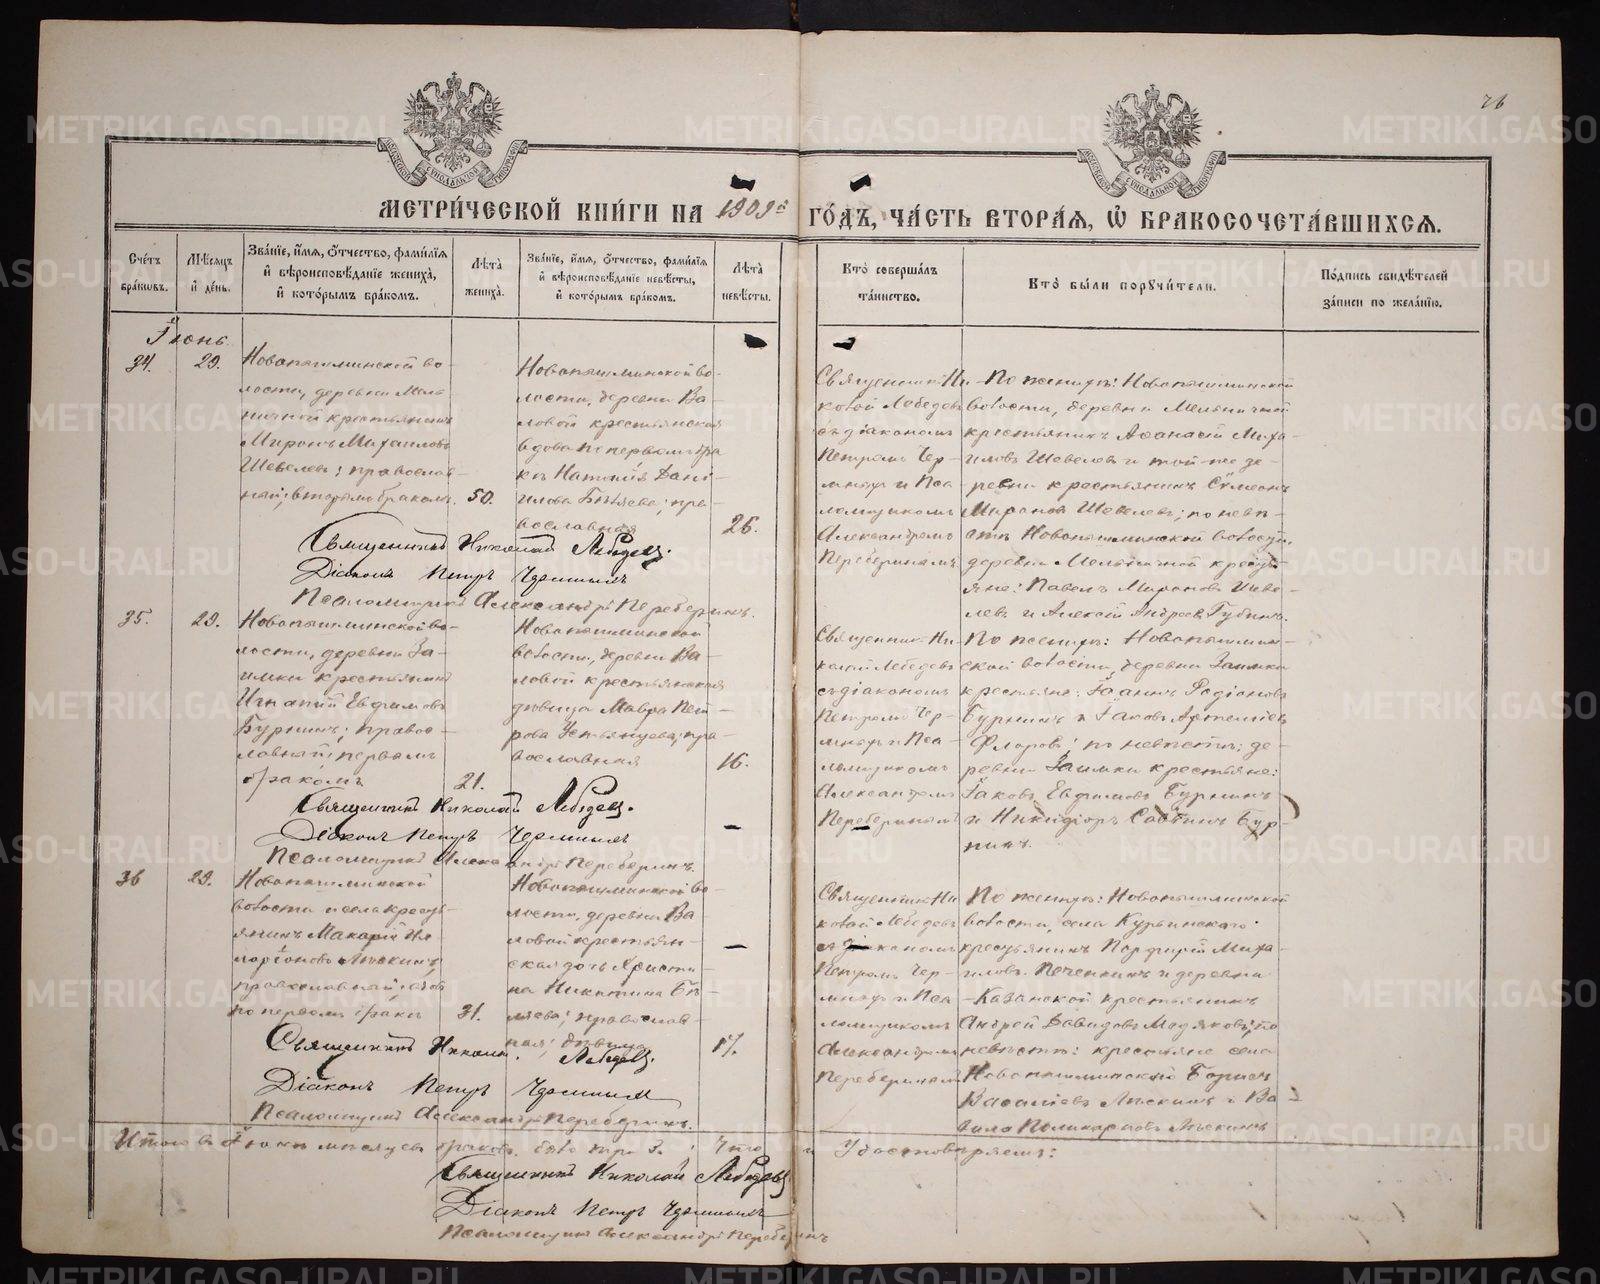 26
МЕТРИ́ЧЕСКОЙ КНИ́ГИ НА 1909й ГО́ДЪ, ЧА́СТЬ ВТОРА́Я, Ѡ БРАКОСОЧЕТА́ВШИХСЯ.
Сче́тъ бра́кѡвъ.
Мѣ́сяцъ и де́нь.
Зва́нїе, и́мя, ѻ́тчество, фами́лїя и вѣроисповѣ́данїе жениха̀, и кото́рымъ бра́комъ.
Лѣ́та жениха̀.
Зва́нїе, и́мя, ѻ́тчество, фами́лїя и вѣроисповѣ́данїе невѣ́сты, и кото́рымъ бра́комъ.
Лѣ́та невѣ́сты.
Кто̀ соверша́лъ та́инство.
Кто̀ бы́ли порꙋчи́тели.
По́дпись свидѣ́телей за́писи по жела́нїю.
Іюнь
34.
29.
Новопышминской во-
лости, деревни Мель
ничной крестьянинъ
Миронъ Михаиловъ
Шевелевъ; православ-
ный; вторымъ бракомъ.
50.
Новопышминской во-
лости, деревни Ва-
ловой крестьянская
вдова по первомъ бра
кѣ Наталія Дані-
илова Бѣляева; пра-
вославная
26.
Священникъ Ни
колай Лебедевъ
съ діакономъ
Петромъ Чер-
мнымъ и Пса
ломщикомъ
Александромъ
Переберинымъ
По женихѣ: Новопышминской
волости, деревни Мельничной
крестьянинъ Афанасій Миха-
иловъ Шевелевъ и той-же де-
ревни крестьянинъ Симеонъ
Мироновъ Шевелевъ; по невѣ-
стѣ Новопышминской волости,
деревни Мельничной кресть
яне: Павелъ Мироновъ Шеве-
левъ и Алексій Андреевъ Губинъ.
Священникъ Николай Лебедевъ.
Діаконъ Петръ Чермныхъ
Псаломщикъ Александръ Переберинъ.
35.
29.
Новопышминской во-
лости, деревни За-
имки крестьянинъ
Игнатій Евфимовъ
Бурнинъ; правос-
лавный; первымъ
бракомъ
21.
Новопышминской
волости, деревни Ва-
ловой крестьянская
дѣвица Мавра Пет-
рова Устьянцева; пра-
вославная
16.
Священникъ Ни-
колай Лебедевъ
съ діакономъ
Петромъ Чер-
мнымъ и Пса-
ломщикомъ
Александромъ
Переберинымъ
По женихѣ: Новопышмин-
ской волости, деревни Заимки
крестьяне: Іоаннъ Родіоновъ
Бурнинъ и Іаковъ Артеміевъ
Флоровъ; по невѣстѣ: де-
ревни Заимки крестьяне:
Іаковъ Евфимовъ Бурнинъ
и Никифоръ Саввинъ Бур-
нинъ.
Священникъ Николай Лебедевъ.
Діаконъ Петръ Чермныхъ
Псаломщикъ Александръ Переберинъ.
36
29.
Новопышминской
волости и села кресть-
янинъ Макарій Ил-
ларіоновъ Лѣскинъ;
православный; вдовъ
по первомъ бракѣ
31.
Новопышминской во-
лости, деревни Ва-
ловой крестьян-
ская дочь Христи-
на Никитина Бѣ-
ляева; православ-
ная; дѣвица
17.
Священникъ Ни
колай Лебедевъ
съ діакономъ
Петромъ Чер-
мнымъ и Пса
ломщикомъ
Александромъ
Переберинымъ
По женихѣ: Новопышминской
волости, села Курьинскаго
крестьянинъ Порфирій Миха-
иловъ Печенкинъ и деревни
Казанской крестьянинъ
Андрей Давидовъ Медяковъ; по
невѣстѣ: крестьяне села
Новопышминскаго Борисъ
Василіевъ Лѣскинъ и Ва-
вила Поликарповъ Лѣскинъ
Священникъ Николай Лебедевъ.
Діаконъ Петръ Чермныхъ
Псаломщикъ Александръ Переберинъ.
Итого въ Іюнѣ мѣсяцѣ браковъ было три 3. Что и удостовѣряемъ:
Священникъ Николай Лебедевъ
Діаконъ Петръ Чермныхъ
Псаломщикъ Александръ Переберинъ
METRIKI.GASO-URAL.RU